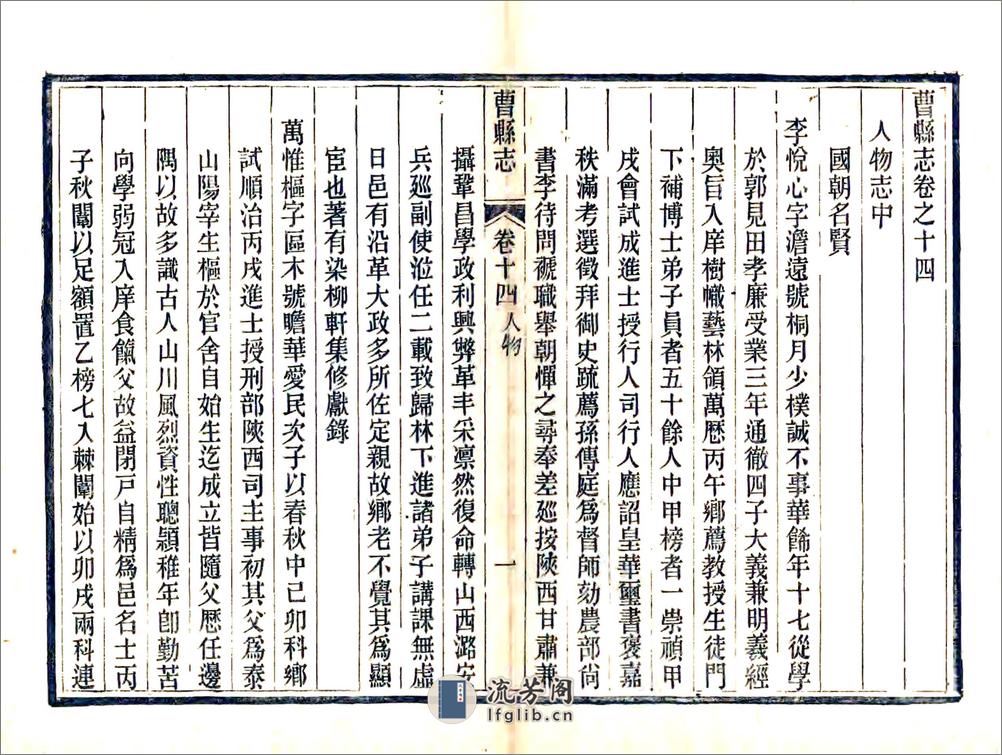 曹縣志卷之十四
人物志中
國朝名賢
李悅心字澹遠號桐月少樸誠不事華餙年十七從學
於郭見田孝廉受業三年通徹四子大義兼明義經
奧旨入庠樹幟藝林領萬歷丙午鄉薦教授生徒門
下補博士弟子員者五十餘人中甲榜者一崇禎甲
戌會試成進士授行人司行人應詔皇華璽書褒嘉
秩滿考選徵拜御史疏薦孫傳庭爲督師劾農部尚
書李待問褫職舉朝憚之尋奉差廵按陝西甘肅兼
曹縣志
卷十四
人物
一
攝鞏昌學政利興弊革丰采凛然復命轉山西潞安
兵廵副使涖任二載致歸林下進諸弟子講課無虛
日邑有沿革大政多所佐定親故鄉老不覺其爲顯
宦也著有染柳軒集修獻錄
萬惟樞字區木號瞻華愛民次子以春秋中己卯科鄉
試順治丙戌進士授刑部陝西司主事初其父爲泰
山陽宰生樞於官舍自始生迄成立皆隨父歷任邊
隅以故多識古人山川風烈資性聰穎稚年卽勤苦
向學弱冠入庠食餼父故益閉戸自精爲邑名士丙
子秋闈以足額置乙榜七入棘闈始以卯戌兩科連
流芳阁
lfglib.cn